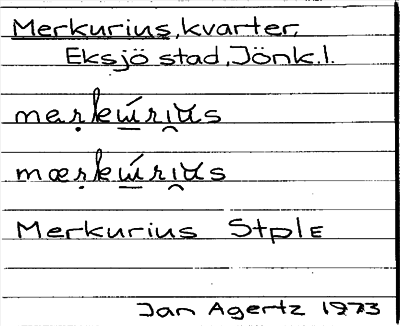 Merkurius, kvarter,
Eksjö stad, Jönk.l.
markúrius
mærkúrius
Merkurius StplE
Jan Agertz 1973